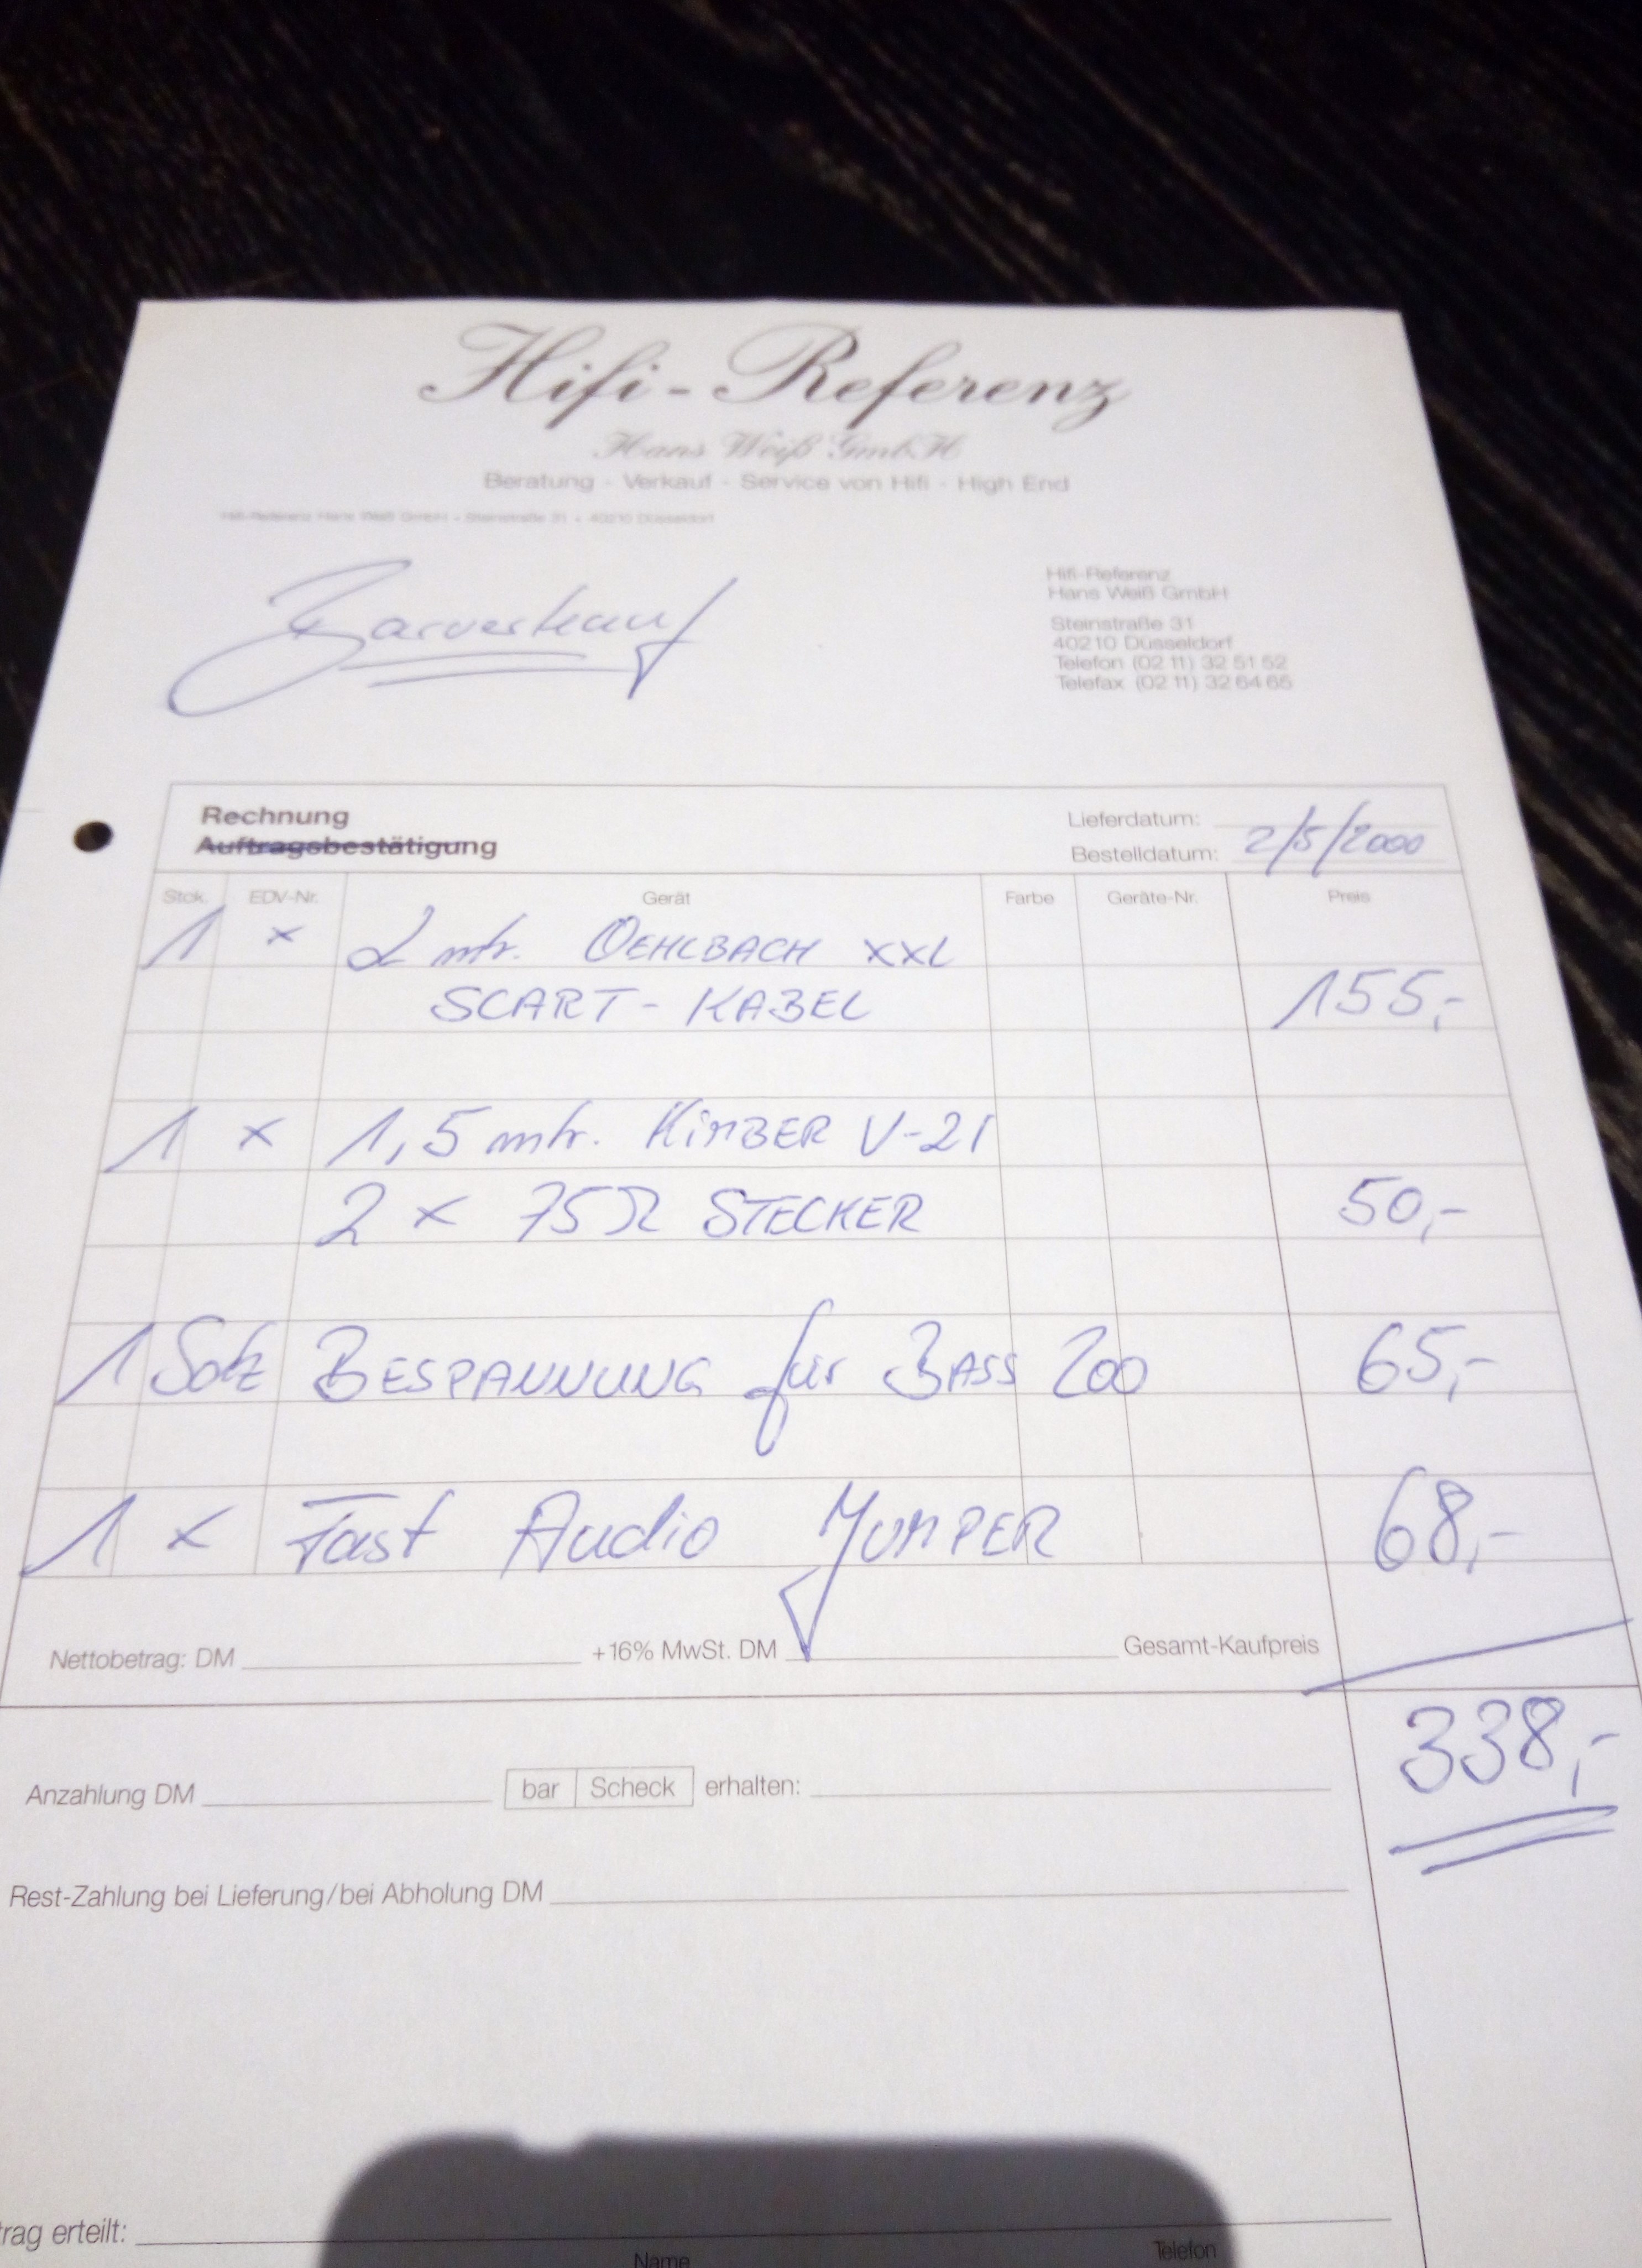 Hifi-Referenz
Hans Weiß GmbH
Beratung - Verkauf - Service von Hifi - High End
Hifi-Referenz Hans Weiß GmbH - Steinstraße 31 - 40210 Düsseldorf
Barverkauf
Hifi-Referenz
Hans Weiß GmbH
Steinstraße 31
40210 Düsseldorf
Telefon (02 11) 32 51 52
Telefax (02 11) 32 64 65
Rechnung
Auftragsbestätigung
Lieferdatum:
Bestelldatum: 2/5/2000
Stck. EDV-Nr. Gerät Farbe Geräte-Nr. Preis
1 x 2 mtr. OEHLBACH XXL
SCART-KABEL 155,-
1 x 1,5 mtr. KIMBER V-21
2 x 75Ω STECKER 50,-
1 Satz BESPANNUNG für BASS 200 65,-
1 x Fast Audio JUMPER 68,-
Nettobetrag: DM +16% MwSt. DM Gesamt-Kaufpreis
338,-
Anzahlung DM bar Scheck erhalten:
Rest-Zahlung bei Lieferung/bei Abholung DM
trag erteilt:
Name Telefon